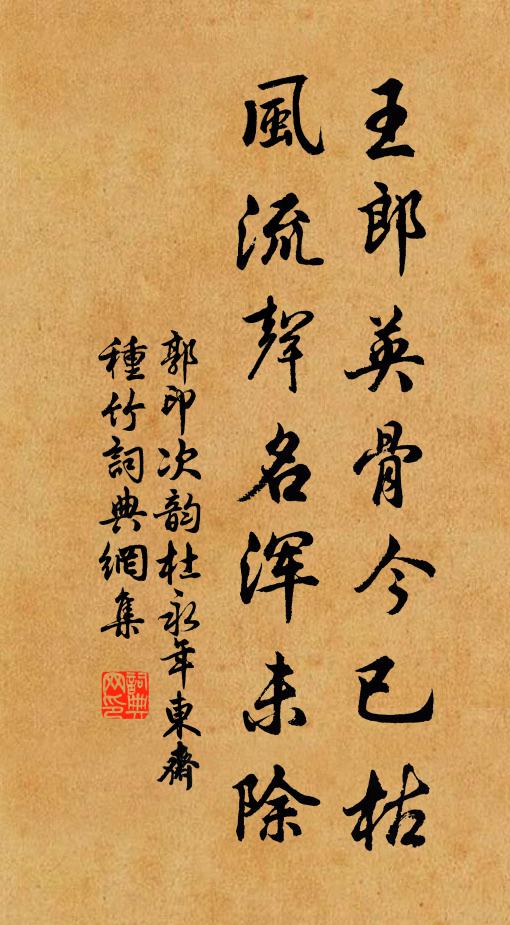 王郎英骨今已枯
風流聲名浑未除
郭印次韵杜永年東齋
種竹詞典網集
詞典网印